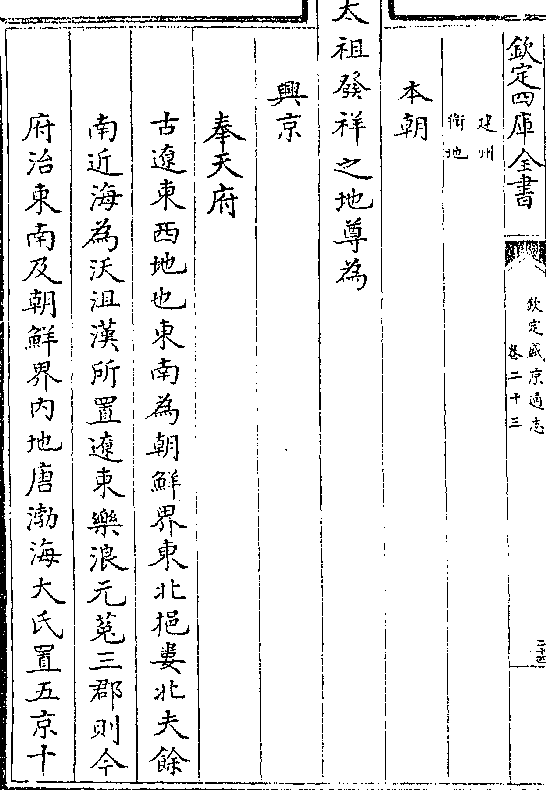 欽定四庫全書
欽定盛京通志
卷二十三
建州
衛地
本朝
太祖發祥之地尊為
興京
奉天府
古遼東西地也東南為朝鮮界東北挹婁北夫餘
南近海為沃沮漢所置遼東樂浪元菟三郡則今
府治東南及朝鮮界内地唐渤海大氏置五京十